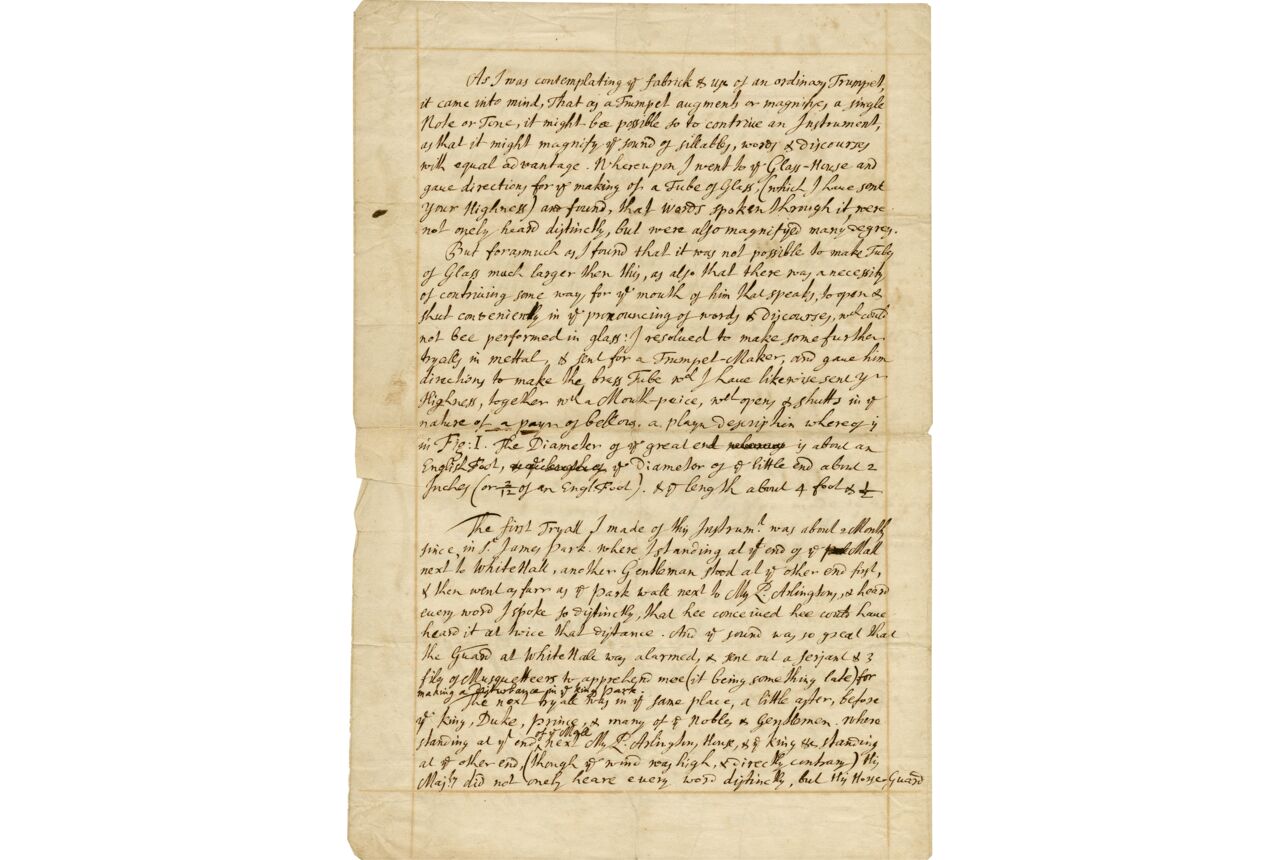 As I was contemplating ye fabrick & use of an ordinary Trumpet,
it came into mind, That as a Trumpet augments or magnifyes a single
Note or Tone, it might bee possible so to contrive an Instrument,
as that it might magnify ye sound of sillables, words & discourses
with equal advantage. Whereupon I went to ye Glass-House and
gave directions for ye making of a Tube of Glass, (which I have sent
Your Highness) and found, that words spoken through it, were
not onely heard distinctly, but were also magnifyed many degrees.
But forasmuch as I found that it was not possible to make Tubes
of Glass much larger then this, as also that there was a necessity
of contriving some way, for ye mouth of him that speaks, to open &
shut conveniently in ye pronouncing of words & discourses, wch could
not bee performed in glass: I resolved to make some further
tryalls in mettal, & sent for a Trumpet-Maker, and gave him
directions to make the brass Tube wch I have likewise sent yr
Highness, together wth a Mouth-peice, wch opens & shutts in ye
nature of a payr of bellows. a playn description whereof is
in Fig: I. The Diameter of ye great end is about an
English Foot, ye Diameter of ye little end about 2
Inches (or 2/12 of an Engl: Foot). & ye length about 4 foot & 1/2
The first Tryall I made of this Instrumt. was about 2 Months
since, in St. James Park. where I standing at ye end of ye Mall
next to WhiteHall, another Gentleman stood at ye other end first,
& then went as farr as ye Park wall next to My L. Arlingtons, & heard
every word I spoke so distinctly, that hee conceived hee could have
heard it at twice that distance. And ye sound was so great that
the Guard at WhiteHall was alarmed, & sent out a serjant & 3
files of Musquetteers to apprehend mee (it being something late) for
making a disturbance in ye kings Park.
The next tryall was in ye same place, a little after, before
ye king, Duke, prince, & many of ye Nobles & Gentlemen. Where
standing at ye end of ye Mall next My L. Arlingtons House, & ye king &c standing
at ye other end, (though ye wind was high, & directly contrary) His
Maj:ty did not onely heare every word distinctly, but His Horse-Guard